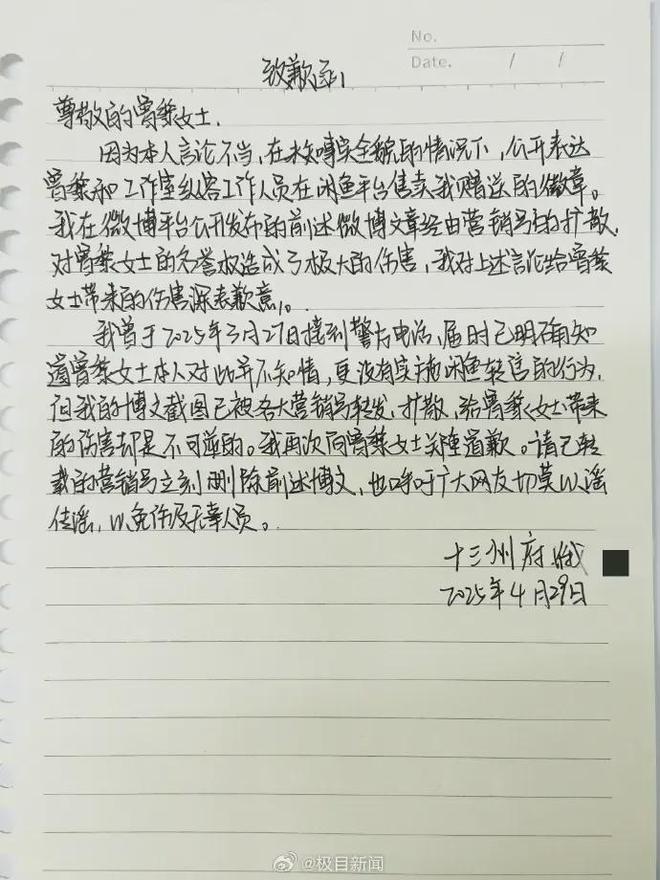 No.
Date. / /
致歉函
尊敬的曾黎女士，
因为本人言论不当，在未核实全貌的情况下，公开表达
曾黎和工作室纵容工作人员在闲鱼平台售卖我赠送的徽章。
我在微博平台公开发布的前述微博文章经由营销号的扩散，
对曾黎女士的名誉权造成了极大的伤害，我对上述言论给曾黎
女士带来的伤害深表歉意。
我曾于2025年3月27日接到警方电话，届时已明确知
道曾黎女士本人对此并不知情，更没有实施闲鱼转售的行为，
但我的博文截图已被各大营销号转发、扩散，给曾黎女士带来
的伤害却是不可逆的。我再次向曾黎女士郑重道歉。请已转
载的营销号立刻删除前述博文，也呼吁广大网友切莫以谣
传谣，以免伤及无辜人员。
十三州府
2025年4月29日
@极目新闻